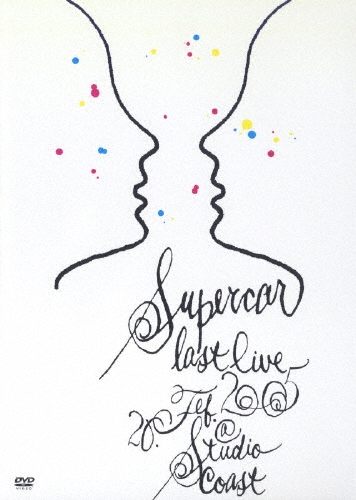 Supercar
last live
26. Feb. 2005
@
Studio
Coast
DVD
VIDEO